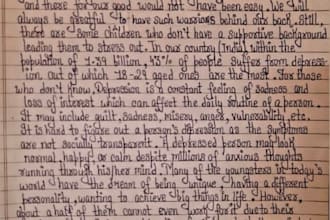 and these for our good would not have been easy. We will
always be grateful to have such warriors behind our back. Still,
there are some children who don't have a supportive background
leading them to stress out. In our country (India) within the
population of 1.39 billion, 43% of people suffer from depress-
ion, out of which 18-29 aged ones are the most. For those
who don't know, Depression is a constant feeling of sadness and
loss of interest which can affect the daily routine of a person.
It may include guilt, sadness, misery, anger, vulnerability etc.
It is hard to figure out a person's depression as the symptoms
are not socially transparent. A depressed person may look
normal, happy or calm despite millions of anxious thoughts
running through his/her mind. Many of the youngsters in today's
world have the dream of being unique, having a different
personality, wanting to achieve big things in life. However,
about a half of them cannot even work for it due to their